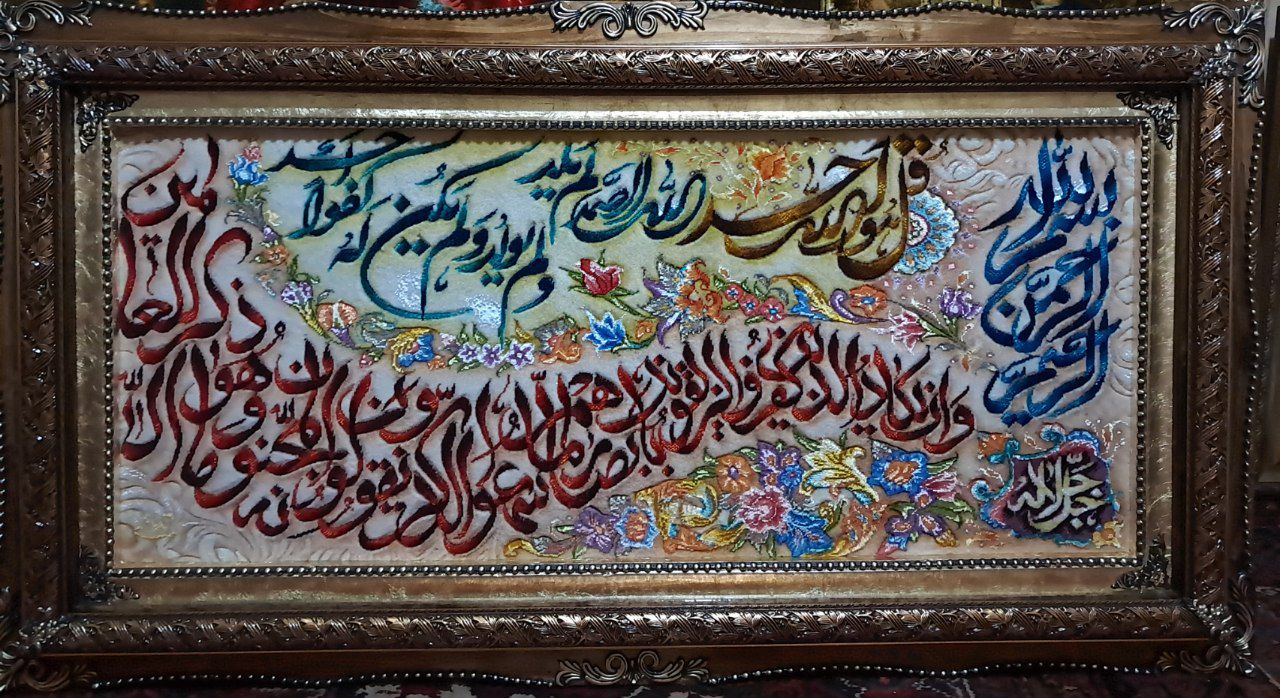 بسم الله
الرحمن
الرحیم
قل هو الله احد
الله الصمد لم یلد
ولم یولد ولم یکن له کفوا احد
وان یکاد الذین کفروا لیزلقونک بابصارهم لما سمعوا الذکر ویقولون انه لمجنون وما هو الا ذکر للعالمین
جل جلاله